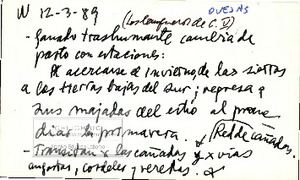 W 12-3-89 OVEJAS
(Los Longueros de C.D)
- Ganado trashumante cambia de
pasto con estaciones:
Al acercarse el invierno, de las sierras
a las tierras bajas del sur; regresa a
sus majadas del estío al prome
diar la primavera. Red de cañadas.
- Transitan x las cañadas y x vías
angostas, cordeles y veredas.